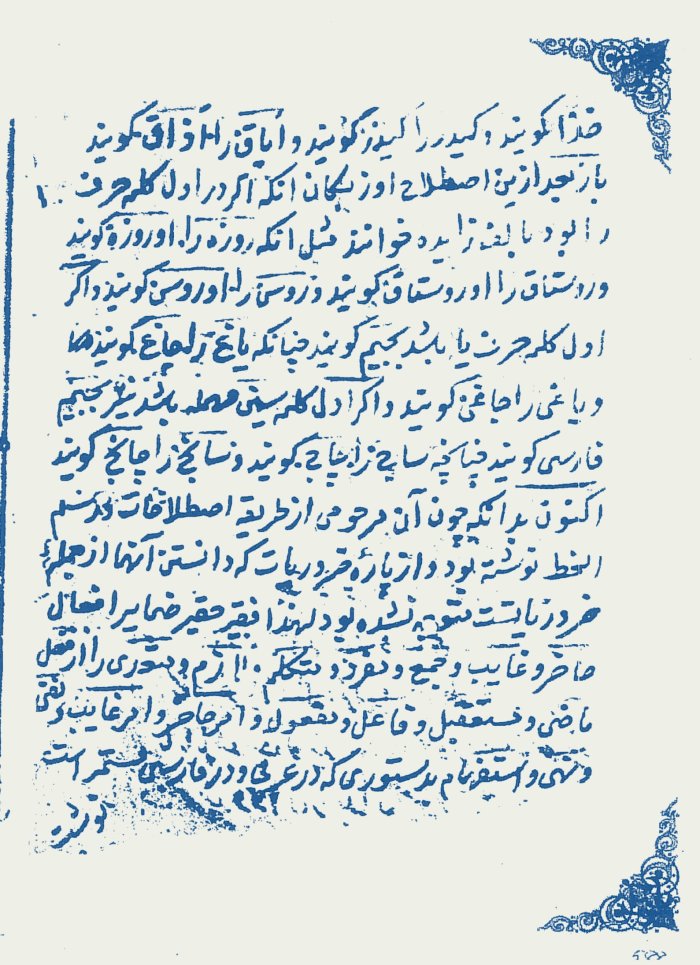 خذا کویند و کیدر را کیدز گویند و ایاق را اذاق کویند
باز بعد ازین اصطلاح اوزبکان انکه اکر در اول کلمه حرف
را بود با الف زایده خوانند مثل انکه روزه را اوروزه کویند
و روستاق را اوروستاق کویند و روس را اوروس کویند و اکر
اول کلمه حرف یا باشد بجیم کویند چنانکه یاغ را جاغ کویند
و یاغی را جاغی کویند و اکر اول کلمه سین مهمله باشد نیز بجیم
فارسی کویند چنانچه ساچ را چاچ کویند و سانچ را چانچ کویند
اکنون بدانکه چون آن مرحومی از طریقه اصطلاحات و رسم
الخط نوشته بود و از پاره ضروریات که دانستن آنها از جمله
ضروریاتست نشده بود لهذا فقیر حقیر ضمایر افعال
حاضر و غایب و جمع و مفرد و متکلم لازم و متعدی را از فعل
ماضی و مستقبل و فاعل و مفعول و امر حاضر و امر غایب و نفی
و نهی و استفهام بدستوری که در عربی و در فارسی مستمر است
نوشت